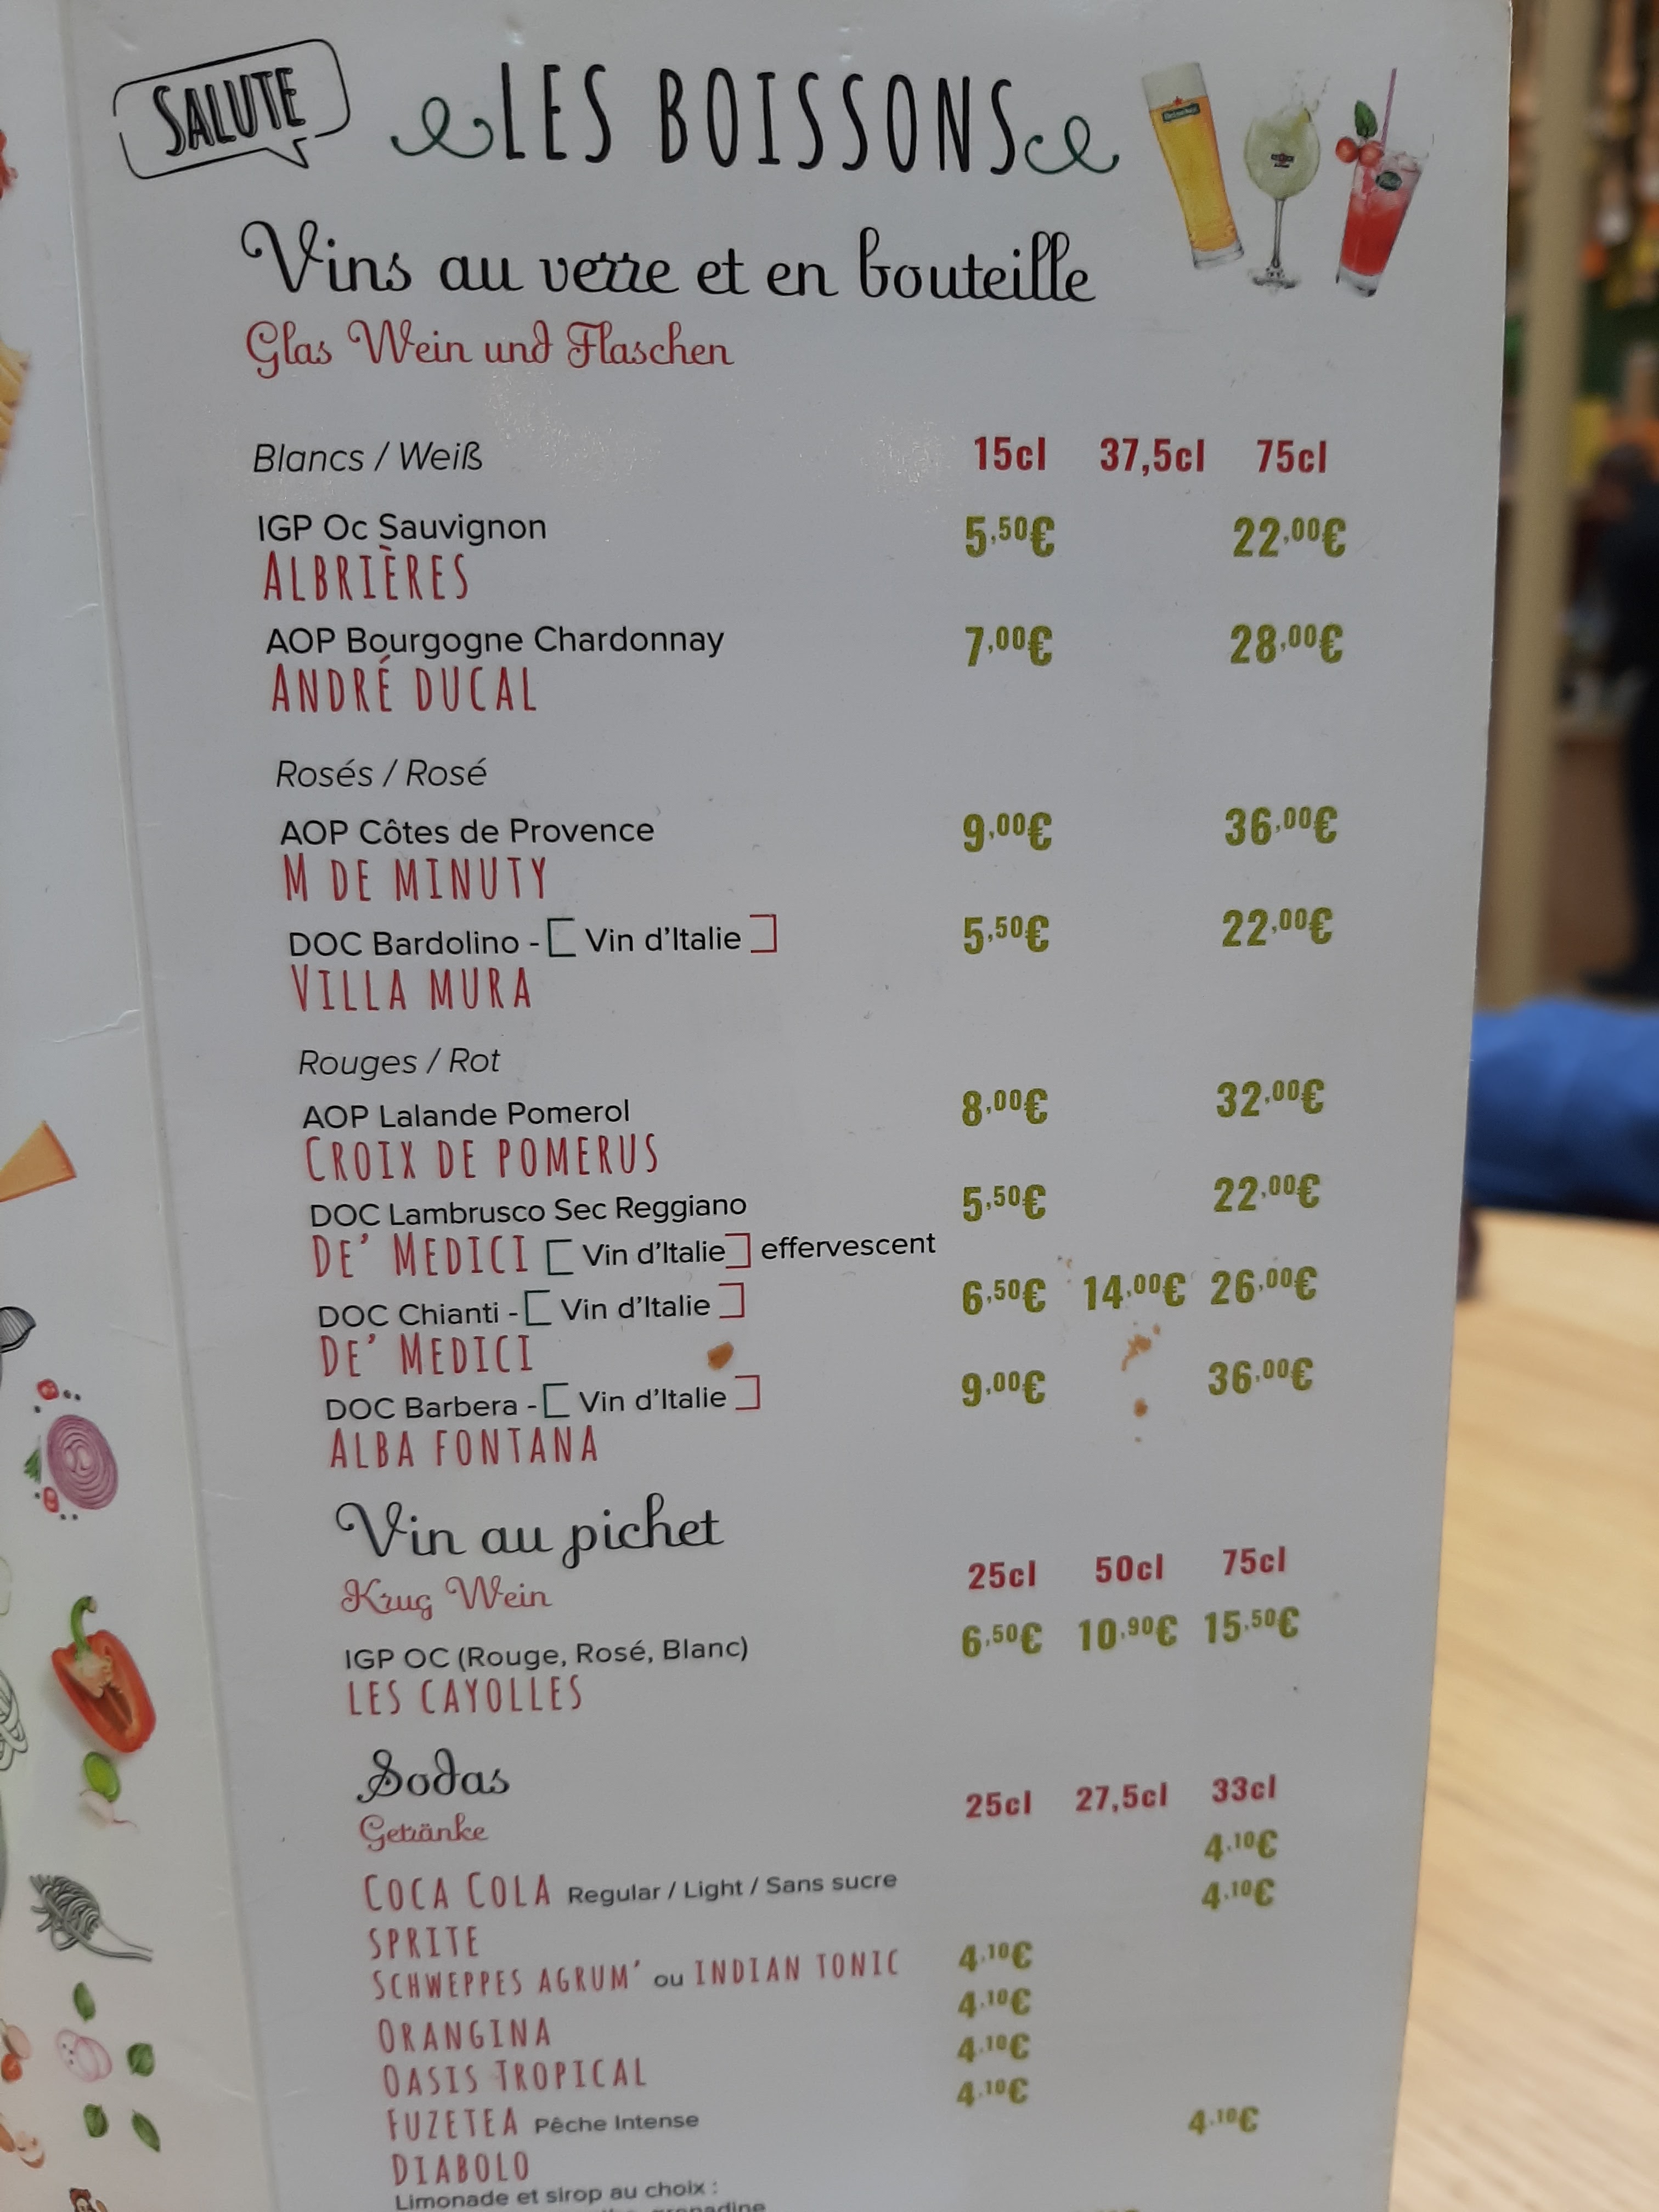 SALUTE
LES BOISSONS
Vins au verre et en bouteille
Glas Wein und Flaschen
Blancs / Weiß 15cl 37,5cl 75cl
IGP Oc Sauvignon 5,50€ 22,00€
ALBRIÈRES
AOP Bourgogne Chardonnay 7,00€ 28,00€
ANDRÉ DUCAL
Rosés / Rosé
AOP Côtes de Provence 9,00€ 36,00€
M DE MINUTY
DOC Bardolino - [ Vin d'Italie ] 5,50€ 22,00€
VILLA MURA
Rouges / Rot
AOP Lalande Pomerol 8,00€ 32,00€
CROIX DE POMERUS
DOC Lambrusco Sec Reggiano 5,50€ 22,00€
DE' MEDICI [ Vin d'Italie ] effervescent
DOC Chianti - [ Vin d'Italie ] 6,50€ 14,00€ 26,00€
DE' MEDICI
DOC Barbera - [ Vin d'Italie ] 9,00€ 36,00€
ALBA FONTANA
Vin au pichet
Krug Wein 25cl 50cl 75cl
IGP OC (Rouge, Rosé, Blanc) 6,50€ 10,90€ 15,50€
LES CAYOLLES
Sodas
Getränke 25cl 27,5cl 33cl
COCA COLA Regular / Light / Sans sucre 4,10€
SPRITE 4,10€
SCHWEPPES AGRUM' ou INDIAN TONIC 4,10€
ORANGINA 4,10€
OASIS TROPICAL 4,10€
FUZETEA Pêche Intense 4,10€
DIABOLO 4,10€
Limonade et sirop au choix :
grenadine